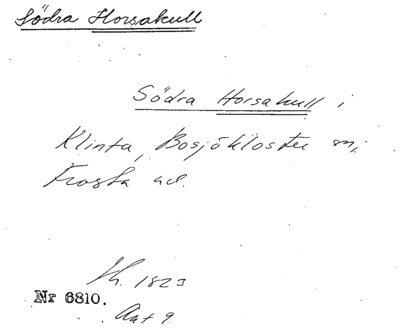 Södra Horsakull
Södra Horsakull i
Klinta, Bosjökloster sn,
Frosta hd.
Sk. 1823
Nr 6810.
Akt 9.